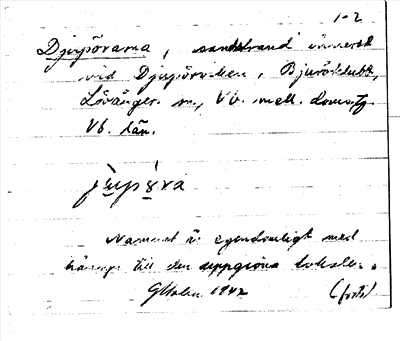 1-2
Djupörarna, sandstrand innerst
vid Djupörviken, Bjuröklubb,
Lövånger sn, Vb. mell. domsg
Vb. län.
Namnet är egendomligt med
hänsyn till den uppgivna lokalen.
1942 (forts)